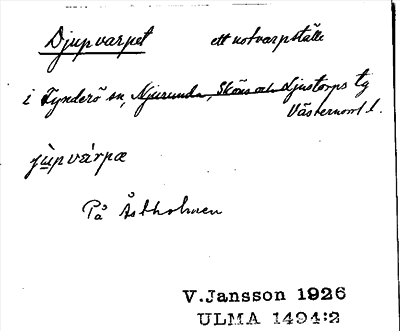 Djupvarpet ett notvarpställe
i Tynderö sn, Njurunda, Sköns och Ljustorps tg
Västernorrl l.
jùpvárpæ
På Åstholmen
V.Jansson 1926
ULMA 1494:2